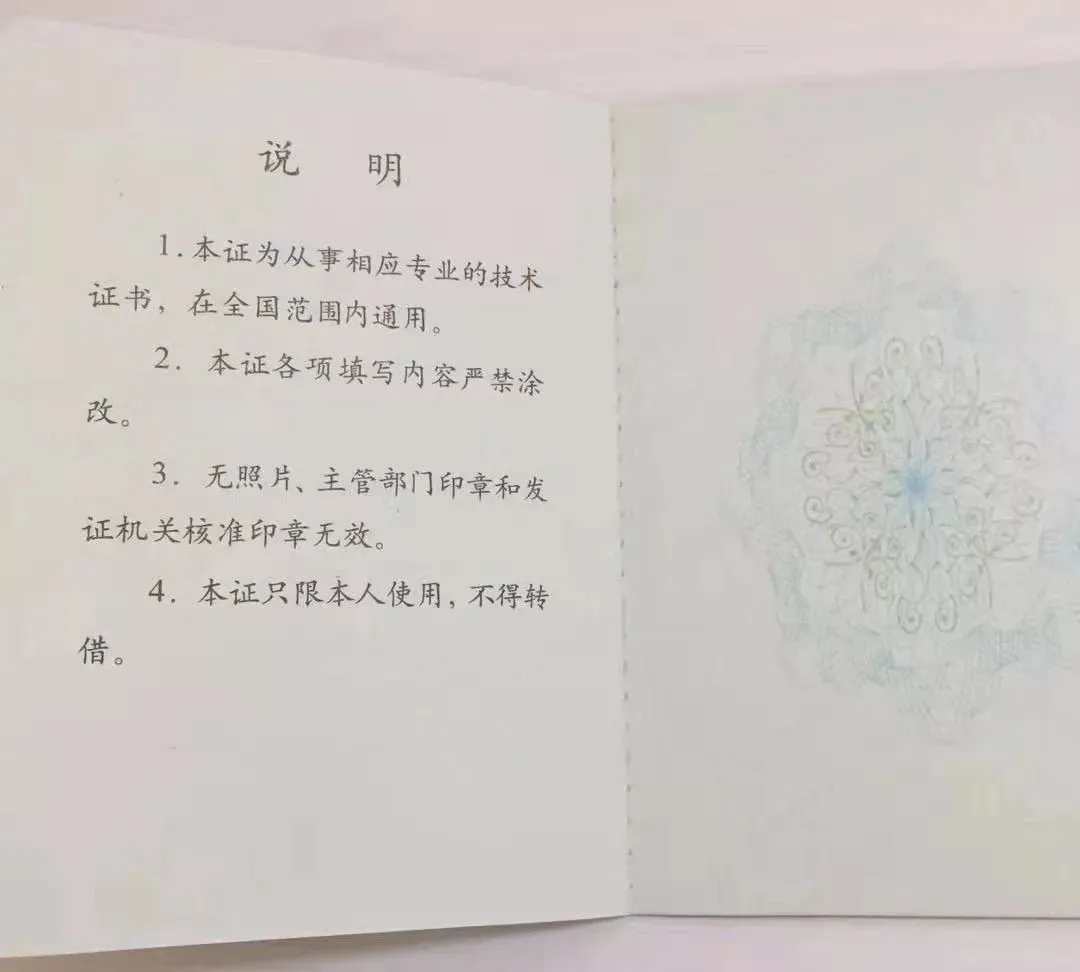 说 明
1.本证为从事相应专业的技术
证书，在全国范围内通用。
2. 本证各项填写内容严禁涂
改。
3. 无照片、主管部门印章和发
证机关核准印章无效。
4. 本证只限本人使用，不得转
借。